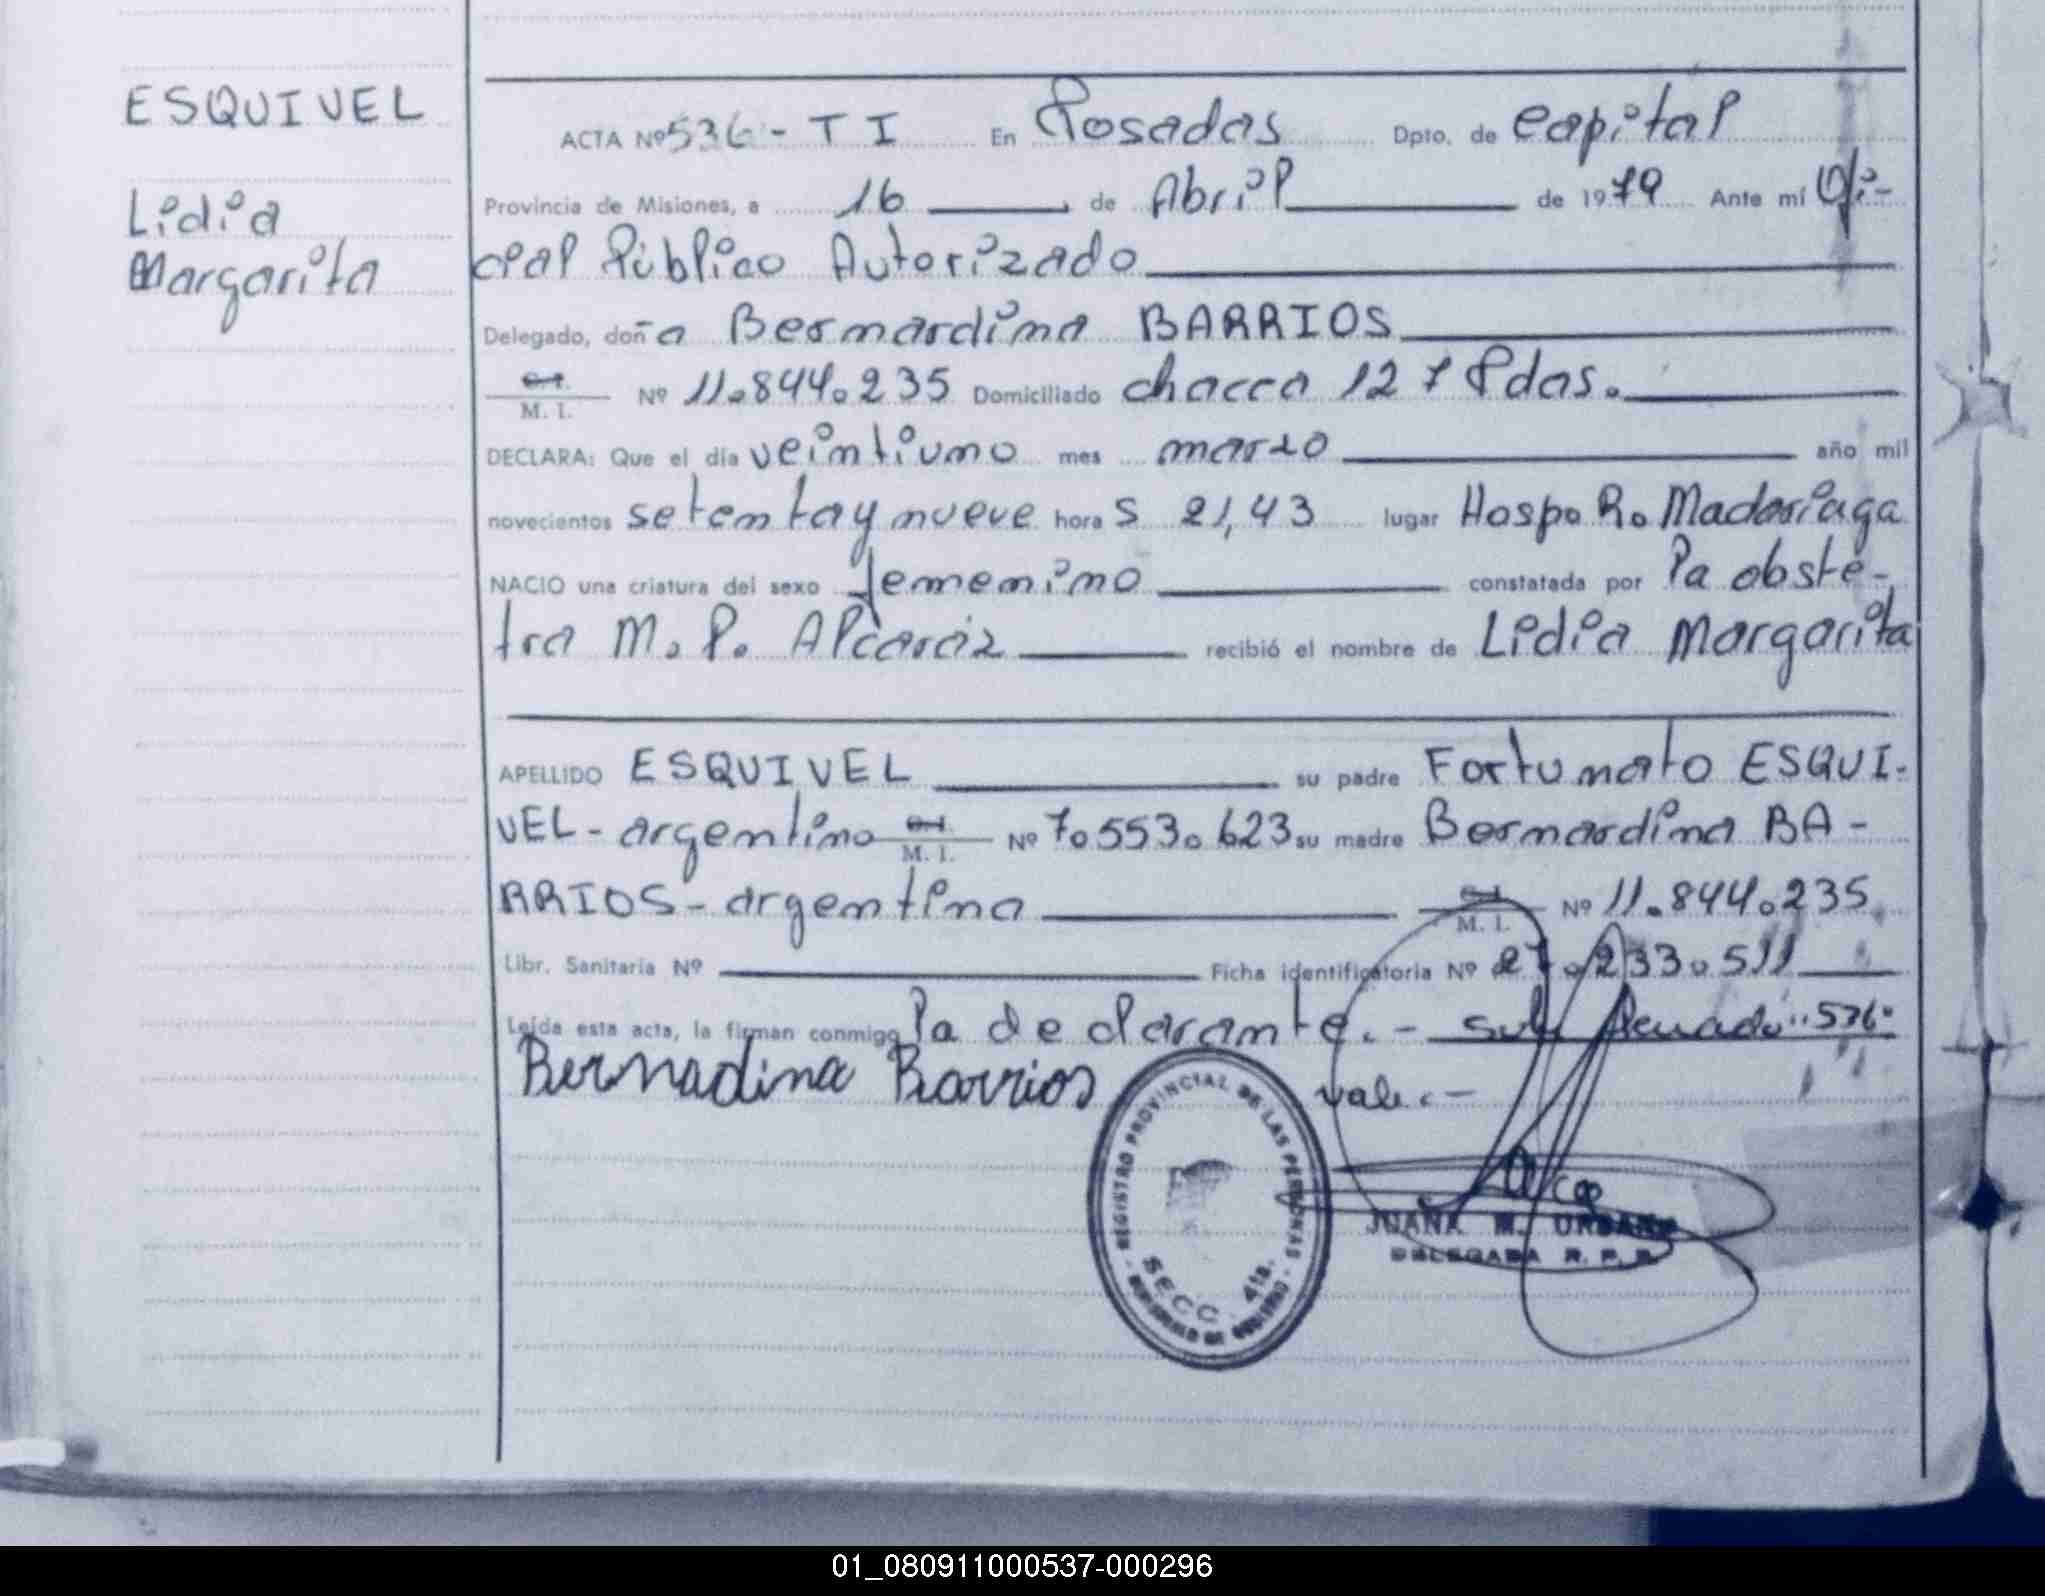 ESQUIVEL
Lidia
Margarita
ACTA Nº 536 - T I En Posadas Dpto. de Capital
Provincia de Misiones, a 16 de Abril de 1979 Ante mí Ofi-
cial Público Autorizado
Delegado, doña Bernardina BARRIOS
M. I. Nº 11.844.235 Domiciliado chacra 127 Pdas.
DECLARA: Que el día veintiuno mes marzo año mil
novecientos setenta y nueve hora s 21,43 lugar Hosp. R. Madariaga
NACIO una criatura del sexo femenino constatada por la obste-
tra M. P. Alcaráz recibió el nombre de Lidia Margarita
APELLIDO ESQUIVEL su padre Fortunato ESQUI-
VEL - argentino M. I. Nº 7.553.623 su madre Bernardina BA-
RRIOS - argentina M. I. Nº 11.844.235
Libr. Sanitaria Nº Ficha identificatoria Nº 27.233.511
Leída esta acta, la firman conmigo la declarante. - "536"
Bernadina Barrios vale. -
REGISTRO PROVINCIAL DE LAS PERSONAS
SECC. 4ta.
JUANA M. URBANA
DELEGADA R. P. P.
01_080911000537-000296